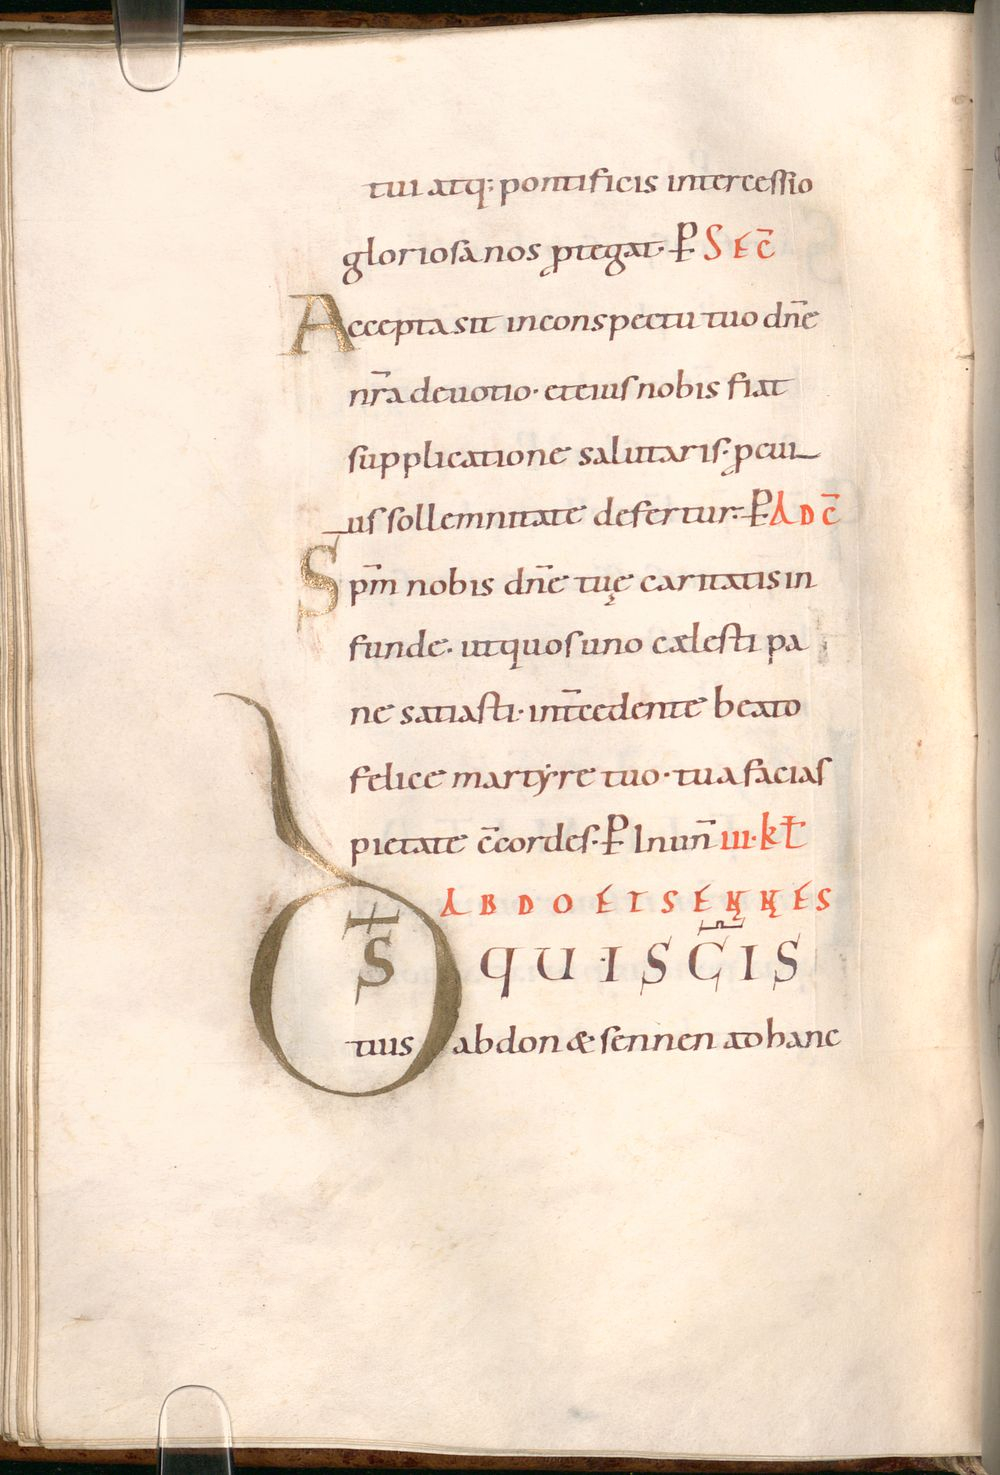 tui atq: pontificis intercessio
gloriosa nos ꝓtegat· P̶ SEC̄
Accepta sit inconspectu tuo dn̄e
nr̄a deuotio· eteius nobis fiat
supplicatione salutaris· ꝑcui
us sollemnitate defertur· P̶ ADC̄
Sp̄m nobis dn̄e tuę caritatis in
funde· utquos uno cælesti pa
ne satiasti· int̄cedente beato
felice martẏre tuo· tua facias
pietate c̄cordes· P̶ Inun̄ III· kł
ABDO ET SENNES
D̄S QUI SC̄IS
tuis abdon & sennen adhanc